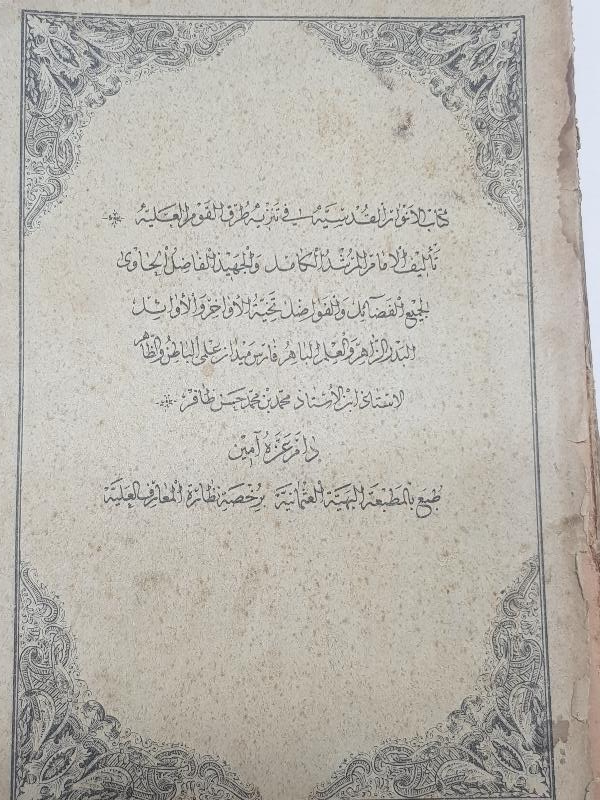 كتاب الانوار القدسيه في تنزيه طرق القوم العليه
تأليف الامام المرشد الكامل والجهبذ الفاضل الحاوى
لجميع الفضائل والفواضل نخبة الأواخر والأوائل
البدر الزاهر والعلم الباهر فارس ميدان علمى الباطن والظاهر
الاستاذ ابن الاستاذ محمد بن محمد حسن ظافر
دام عزه آمين
طبع بالمطبعة البهية العثمانية برخصة نظارة المعارف العلية